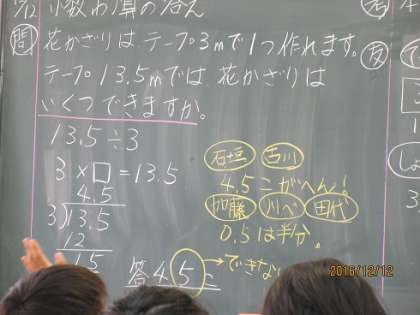 小数わり算の答え
問 花かざりは、テープ3mで1つ作れます。
テープ13.5mでは、花かざりは
いくつできますか。
13.5÷3
3×□=13.5
4.5
3)13.5
12
15
答 4.5こ
石垣 古川
4.5こがへん!
加藤 川べ 田代
0.5は半分。
できな
友
3
2016/12/12